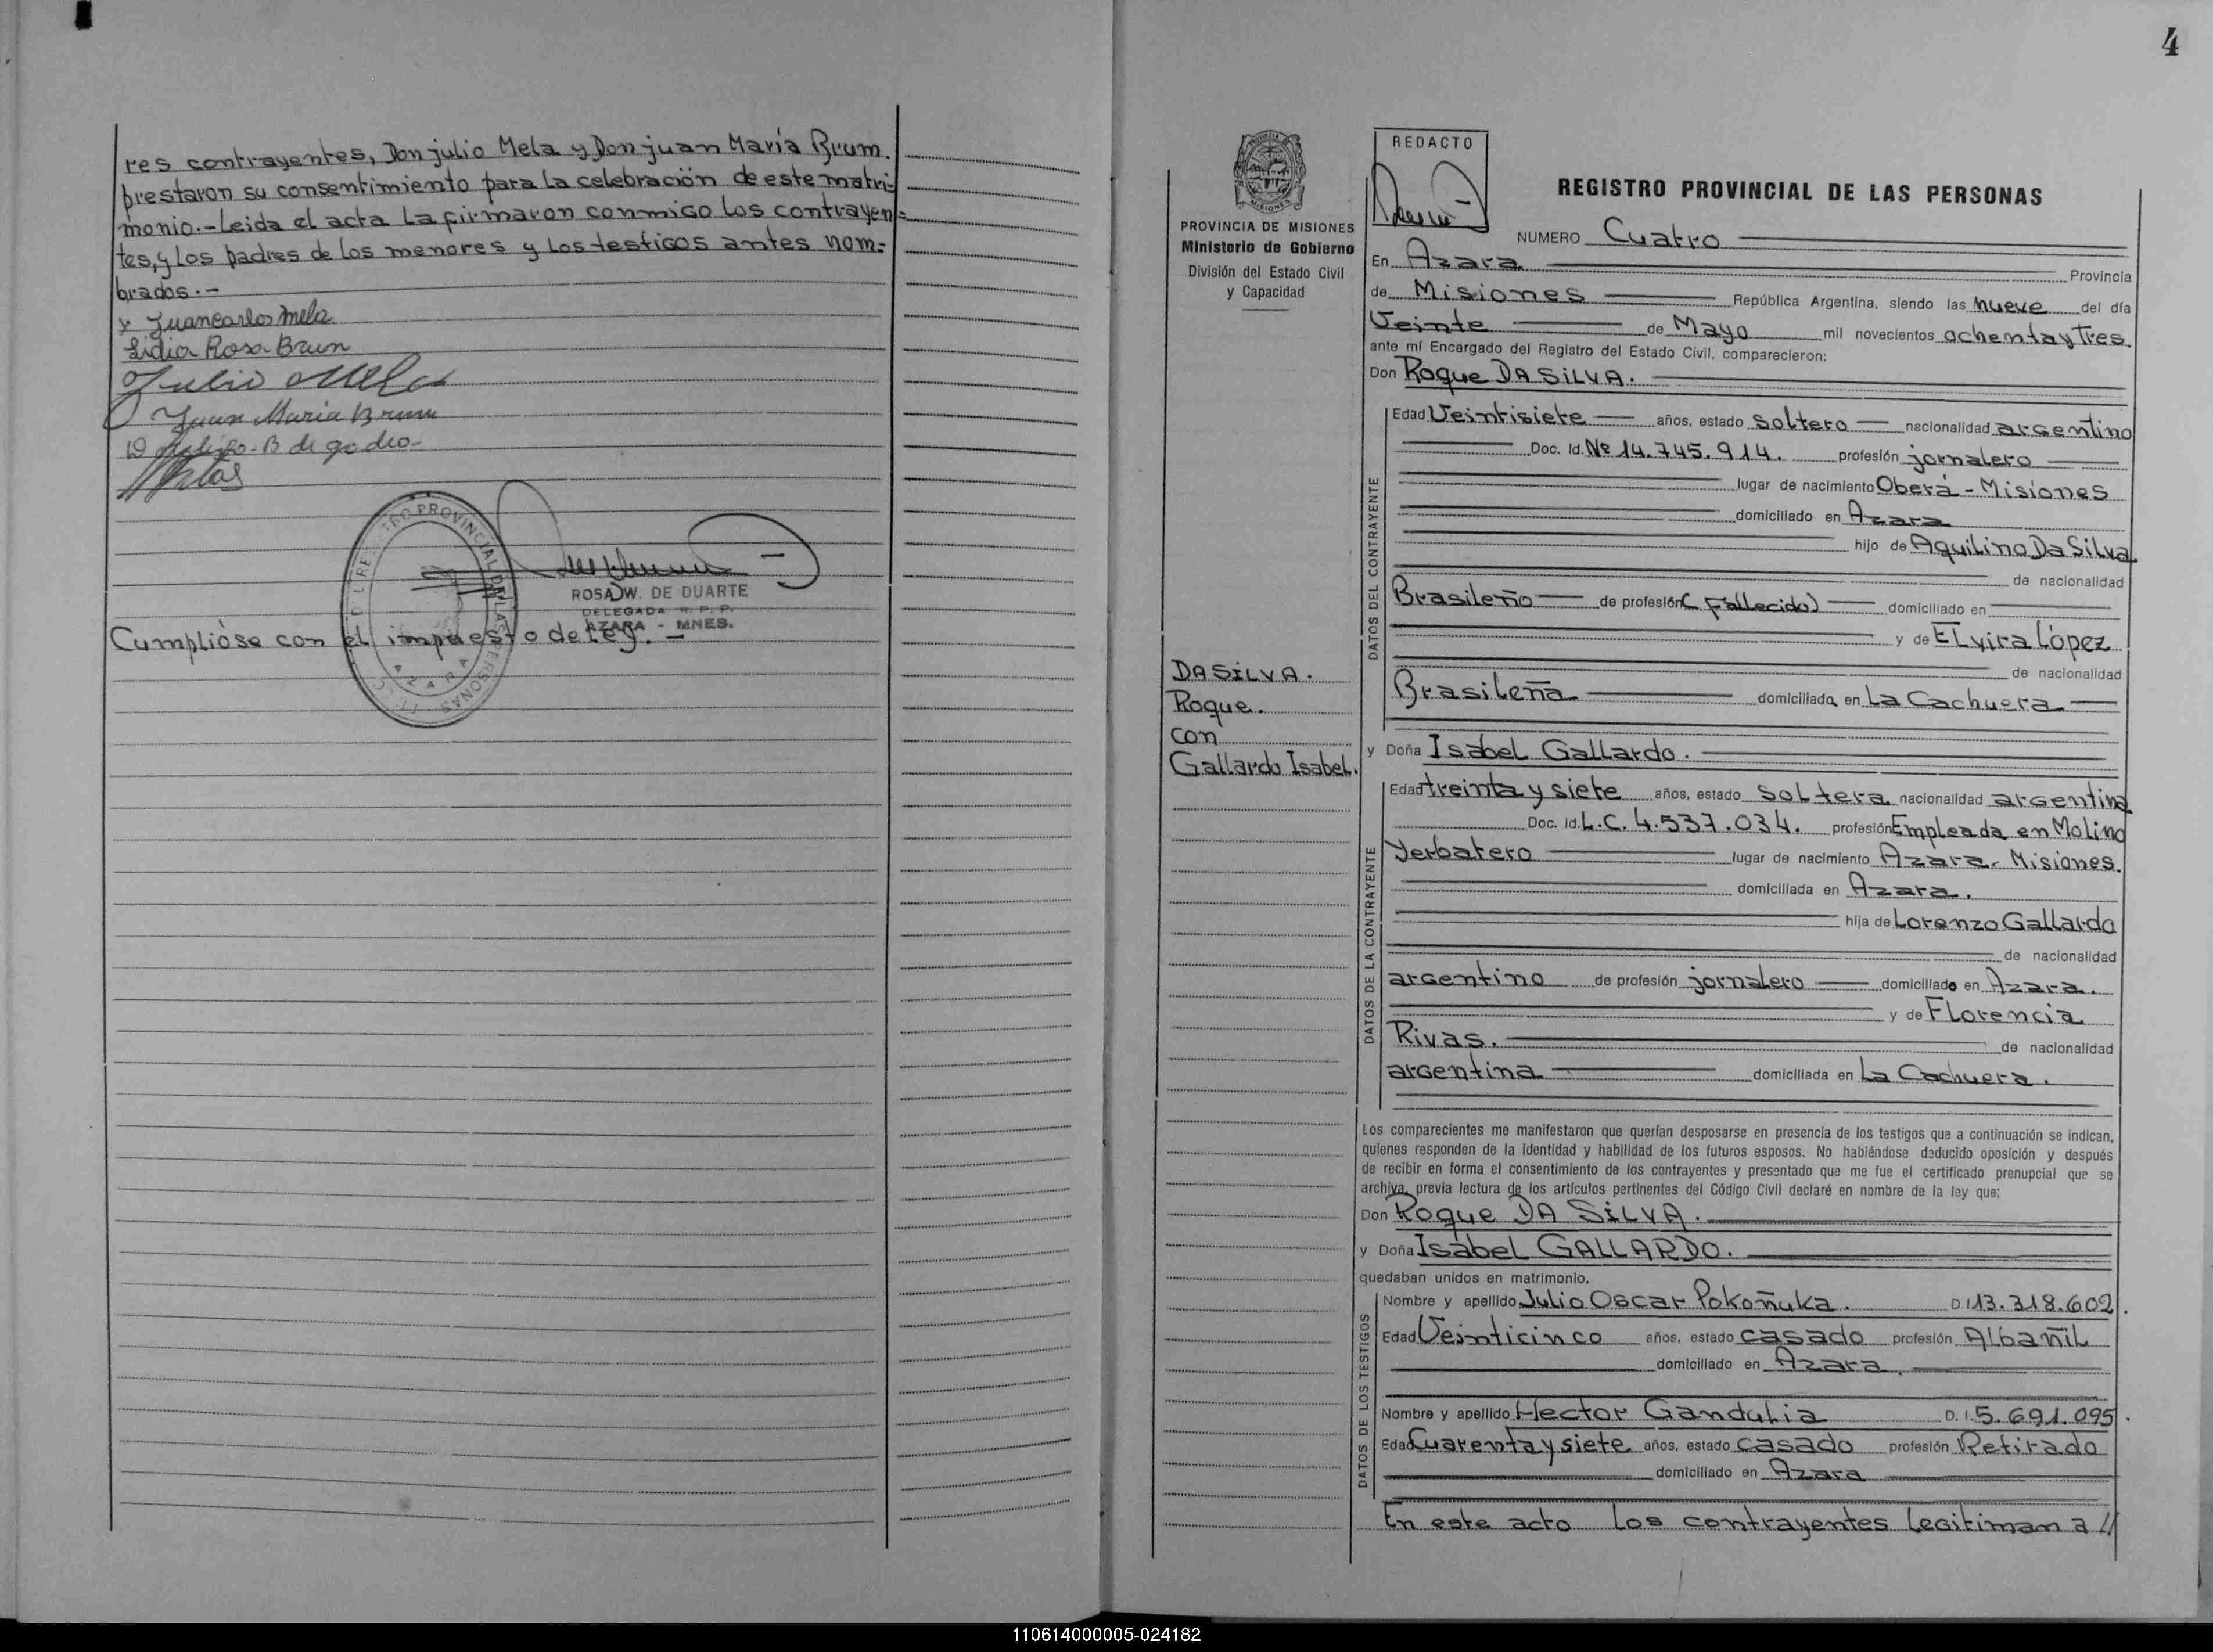 res contrayentes, Don julio Mela y Don juan María Brum.
prestaron su consentimiento para la celebración de este matri-
monio.- Leida el acta la firmaron conmigo los contrayen=
tes, y los padres de los menores y los testigos antes nom=
brados.-
x Juan carlos Mela
Lidia Rosa Brun
Julio Mela
Juan Maria Brum
B de godeo
ROSA W. DE DUARTE
DELEGADA R. P. P.
AZARA - MNES.
Cumplióse con el impuesto de ley. -
4
PROVINCIA DE MISIONES
Ministerio de Gobierno
División del Estado Civil
y Capacidad
DA SILVA.
Roque.
con
Gallardo Isabel.
REDACTO
REGISTRO PROVINCIAL DE LAS PERSONAS
NUMERO Cuatro
En Azara Provincia
de Misiones República Argentina, siendo las nueve del día
Veinte de Mayo mil novecientos ochenta y Tres
ante mí Encargado del Registro del Estado Civil, comparecieron:
Don Roque DA SILVA.
DATOS DEL CONTRAYENTE
Edad Veintisiete años, estado soltero nacionalidad argentino
Doc. Id. Nº 14.745.914. profesión jornalero
lugar de nacimiento Oberá - Misiones
domiciliado en Azara
hijo de Aquilino Da Silva
de nacionalidad
Brasileño de profesión (Fallecido) domiciliado en
y de Elvira López
de nacionalidad
Brasileña domiciliada en La Cachuera
y Doña Isabel Gallardo.
DATOS DE LA CONTRAYENTE
Edad treinta y siete años, estado soltera nacionalidad argentina
Doc. Id. L.C. 4.537.034. profesión Empleada en Molino
Yerbatero lugar de nacimiento Azara - Misiones.
domiciliada en Azara.
hija de Lorenzo Gallardo
de nacionalidad
argentino de profesión jornalero domiciliado en Azara.
y de Florencia
Rivas. de nacionalidad
argentina domiciliada en La Cachuera.
Los comparecientes me manifestaron que querían desposarse en presencia de los testigos que a continuación se indican,
quienes responden de la identidad y habilidad de los futuros esposos. No habiéndose deducido oposición y después
de recibir en forma el consentimiento de los contrayentes y presentado que me fue el certificado prenupcial que se
archiva, previa lectura de los artículos pertinentes del Código Civil declaré en nombre de la ley que;
Don Roque DA SILVA.
y Doña Isabel GALLARDO.
quedaban unidos en matrimonio.
DATOS DE LOS TESTIGOS
Nombre y apellido Julio Oscar Pokoñuka. D.I. 13.318.602.
Edad Veinticinco años, estado casado profesión Albañil
domiciliado en Azara.
Nombre y apellido Hector Gandulia D. I. 5.691.095.
Edad Cuarenta y siete años, estado casado profesión Retirado
domiciliado en Azara
En este acto los contrayentes legitiman a //
110614000005-024182